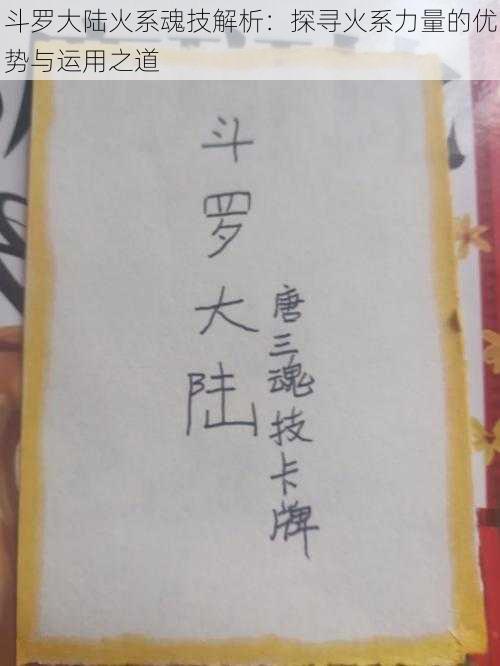 斗罗大陆火系魂技解析：探寻火系力量的优
势与运用之道
斗罗大陆
唐三魂技卡牌